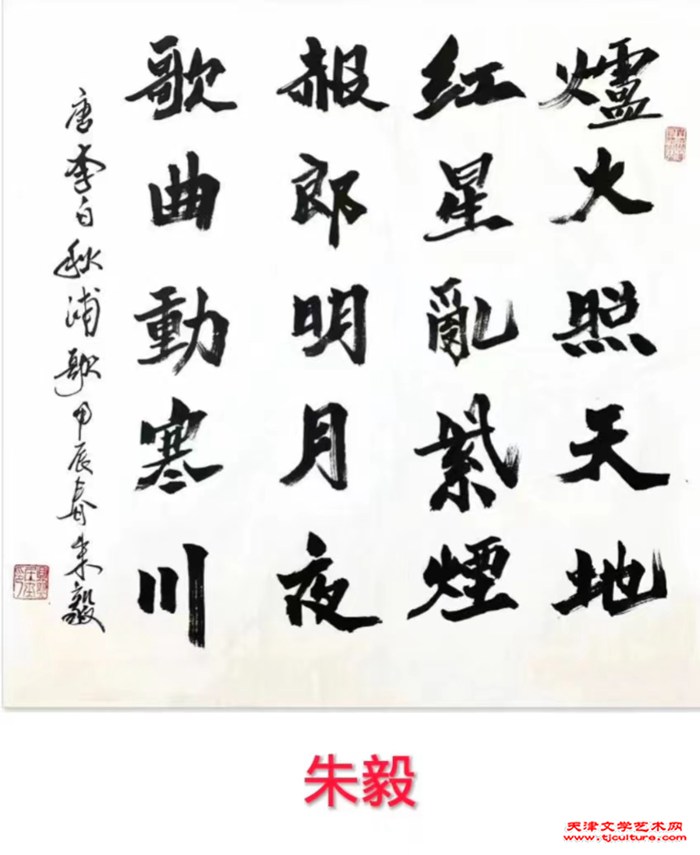 爐火照天地
红星亂紫煙
赧郎明月夜
歌曲動寒川
唐李白秋浦歌甲辰春朱毅
朱毅
天津文学艺术网
www.tjculture.com